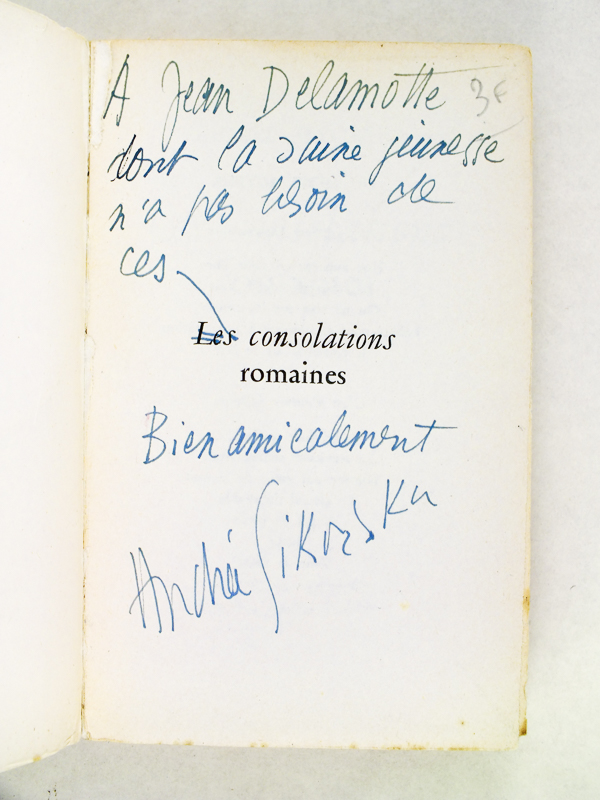 A Jean Delamotte
3F
dont la saine jeunesse
n'a pas besoin de
ces
Les consolations
romaines
Bien amicalement
André Sikorska